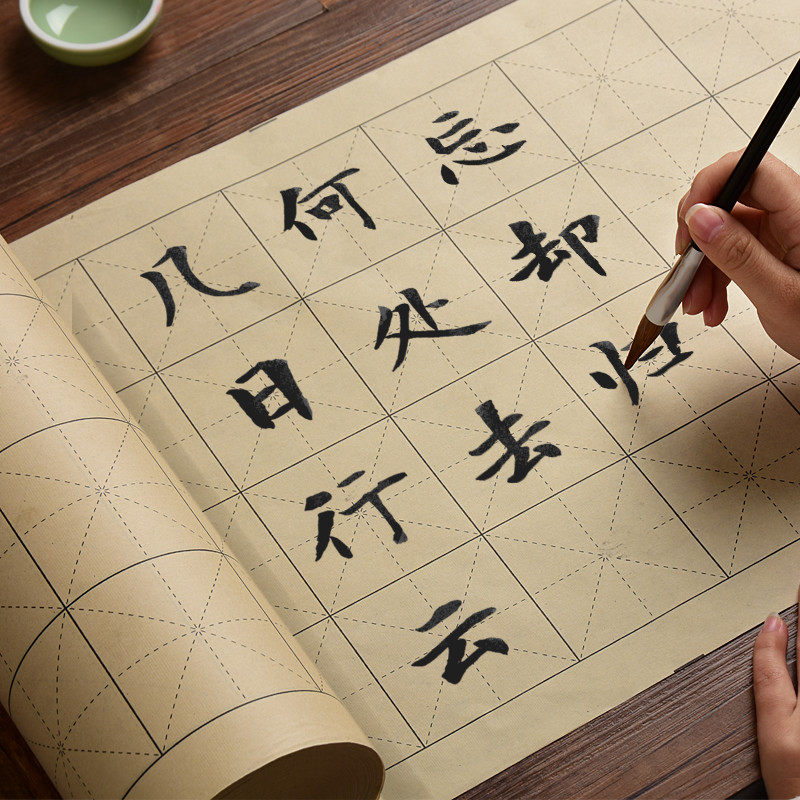 几日行云
何处去
忘却归